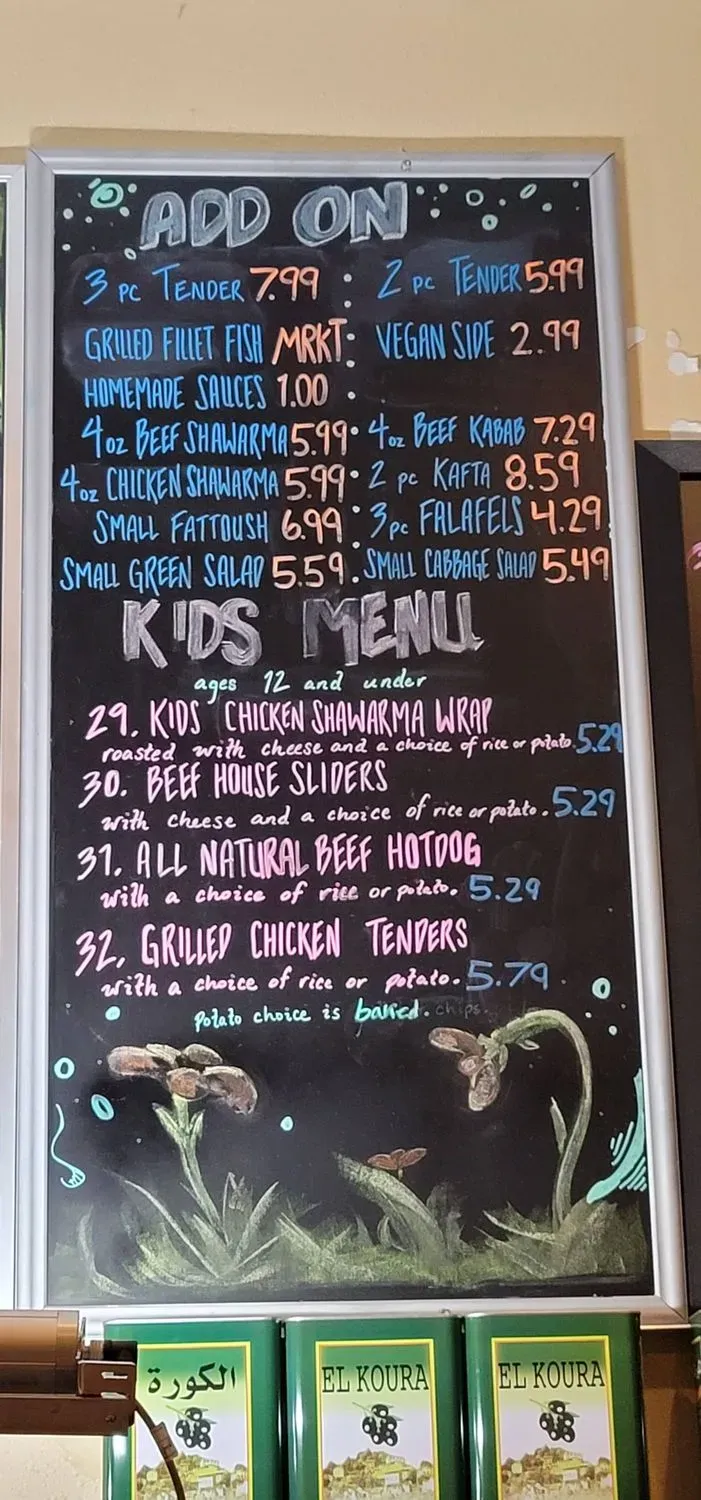 ADD ON
3 PC TENDER 7.99 2 PC TENDER 5.99
GRILLED FILLET FISH MRKT VEGAN SIDE 2.99
HOMEMADE SAUCES 1.00
4oz BEEF SHAWARMA 5.99 4oz BEEF KABAB 7.29
4oz CHICKEN SHAWARMA 5.99 2 pc KAFTA 8.59
SMALL FATTOUSH 6.99 3pc FALAFELS 4.29
SMALL GREEN SALAD 5.59 SMALL CABBAGE SALAD 5.49
KIDS MENU
ages 12 and under
29. KIDS CHICKEN SHAWARMA WRAP
roasted with cheese and a choice of rice or potato. 5.29
30. BEEF HOUSE SLIDERS
with cheese and a choice of rice or potato. 5.29
31. ALL NATURAL BEEF HOTDOG
with a choice of rice or potato. 5.29
32. GRILLED CHICKEN TENDERS
with a choice of rice or potato. 5.79
Potato choice is chips.
الكورة
EL KOURA
EL KOURA